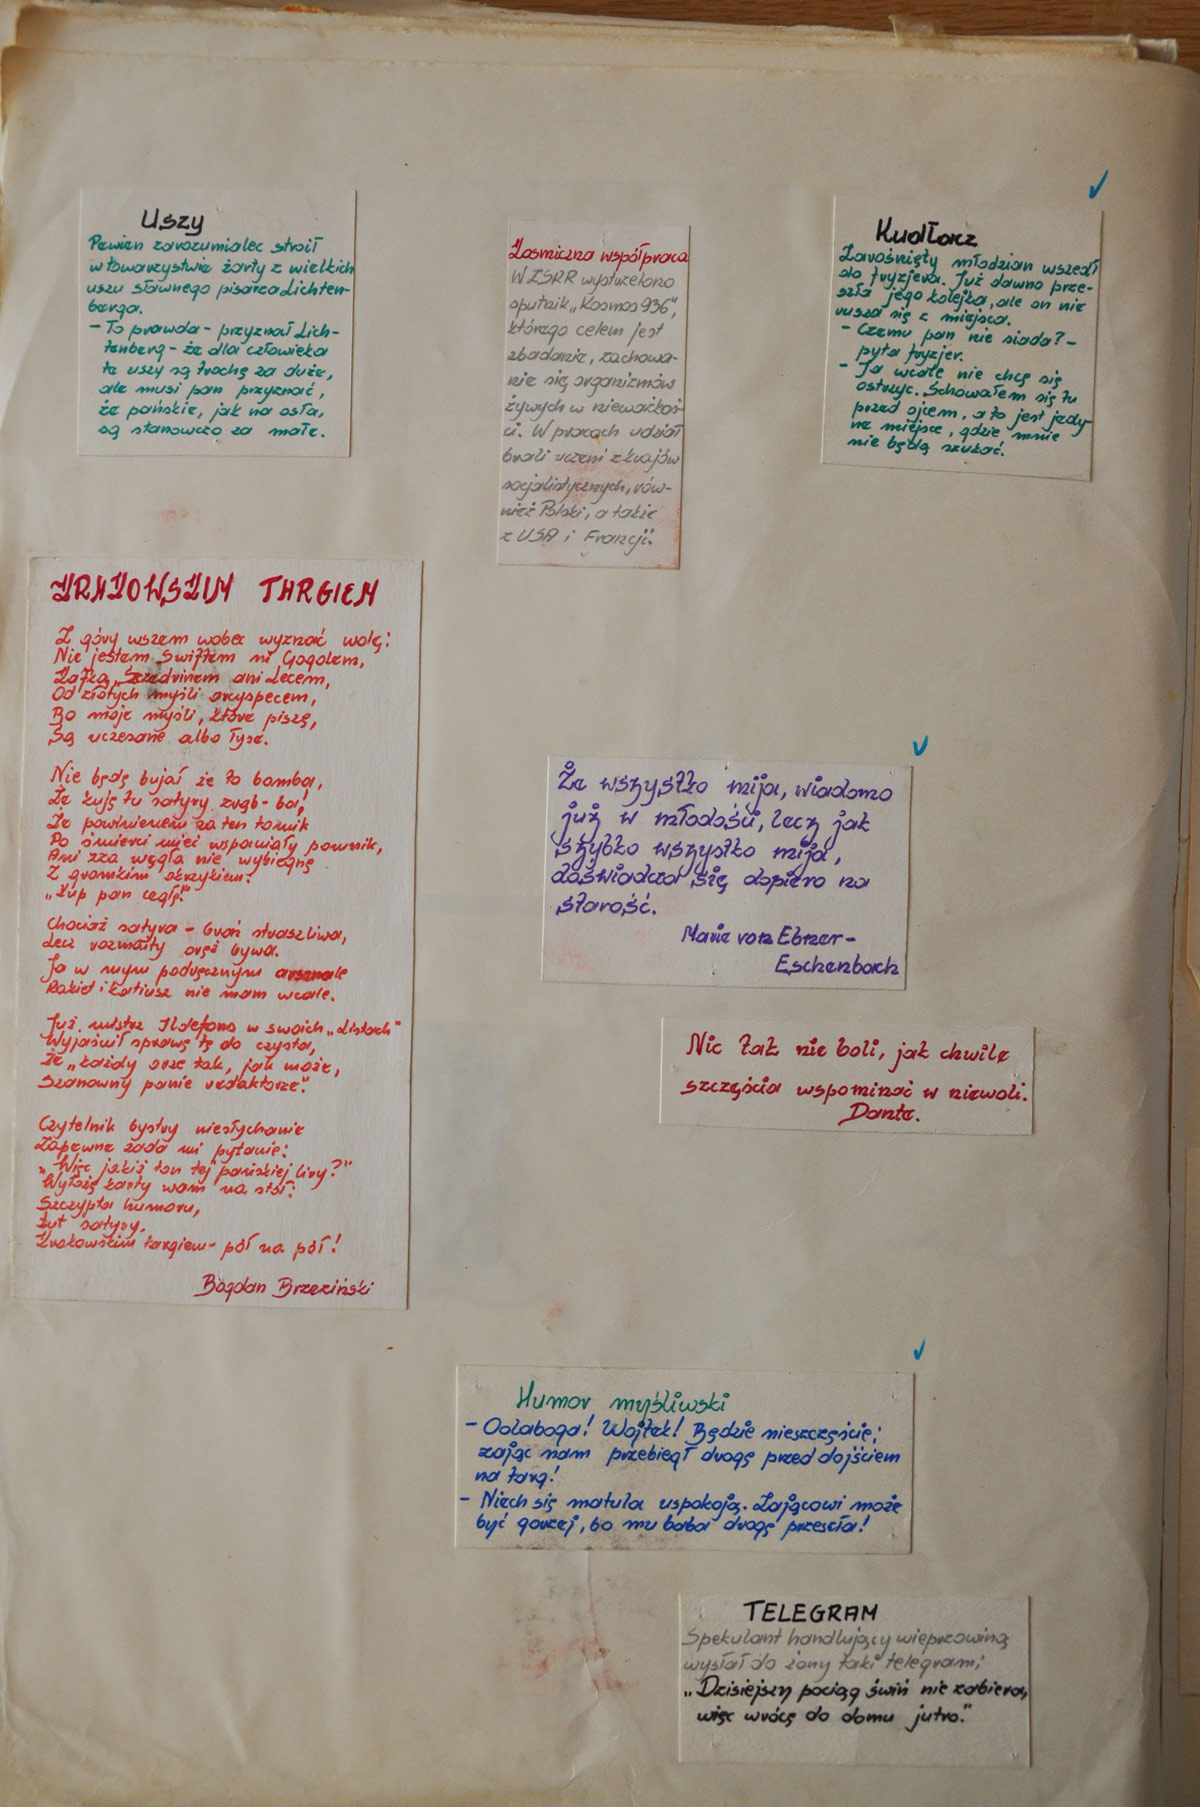 Uszy
Pewien zarozumialec stroił
w towarzystwie żarty z wielkich
uszu sławnego pisarza Lichten-
berga.
- To prawda - przyznał Lich-
tenberg - że dla człowieka
te uszy są trochę za duże,
ale musi pan przyznać,
że pańskie, jak na osła,
są stanowczo za małe.
Kosmiczna współpraca
W ZSRR wystrzelono
sputnik „Kosmos 936",
którego celem jest
zbadanie, zachowa-
nie się organizmów
żywych w nieważkoś-
ci. W pracach udział
brali uczeni z krajów
socjalistycznych, rów-
nież Polski, a także
z USA i Francji".
Kudłacz
Zarośnięty młodzian wszedł
do fryzjera. Już dawno prze-
szła jego kolejka, ale on nie
rusza się z miejsca.
- Czemu pan nie siada? -
pyta fryzjer.
- Ja wcale nie chcę się
ostrzyc. Schowałem się tu
przed ojcem, a to jest jedy-
ne miejsce, gdzie mnie
nie będą szukać.
KRAKOWSKIM TARGIEM
Z góry wszem wobec wyznać wolę:
Nie jestem Swiftem ni Gogolem,
Kafką, Szczedrinem ani Lecem,
Od złotych myśli arcyspecem,
Bo moje myśli, które piszę,
Są uczesane albo łyse.
Nie będę bujał że to bomba,
Że kuję tu satyry ząb-ba!
Że powinienem za ten tomik
Po śmierci mieć wspaniały pomnik,
Ani zza węgła nie wybiegnę
Z gromkim okrzykiem:
„Kup pan cegłę!"
Chociaż satyra - broń straszliwa,
Lecz rozmaity oręż bywa.
Ja w mym podręcznym arsenale
Rakiet i katiusz nie mam wcale.
Już mistrz Ildefons w swoich „Listach"
Wyjaśnił sprawę tę do czysta,
Że „każdy orze tak, jak może,
Szanowny panie redaktorze".
Czytelnik bystry niesłychanie
Zapewne zada mi pytanie:
„Więc jakiż ton tej pańskiej liry?"
Wyłożę karty wam na stół:
Szczypta humoru,
Łut satyry,
Krakowskim targiem - pół na pół!
Bogdan Brzeziński
Że wszystko mija, wiadomo
już w młodości, lecz jak
szybko wszystko mija,
doświadcza się dopiero na
starość.
Marie von Ebner-
Eschenbach
Nic tak nie boli, jak chwile
szczęścia wspominać w niewoli.
Dante.
Humor myśliwski
- Oolaboga! Wojtek! Będzie nieszczęście;
zając nam przebiegł drogę przed dojściem
na targ!
- Niech się matula uspokoją. Zającowi może
być gorzej, bo mu baba drogę przeszła!
TELEGRAM
Spekulant handlujący wieprzowiną
wysłał do żony taki telegram:
„Dzisiejszy pociąg świń nie zabiera,
więc wrócę do domu jutro."